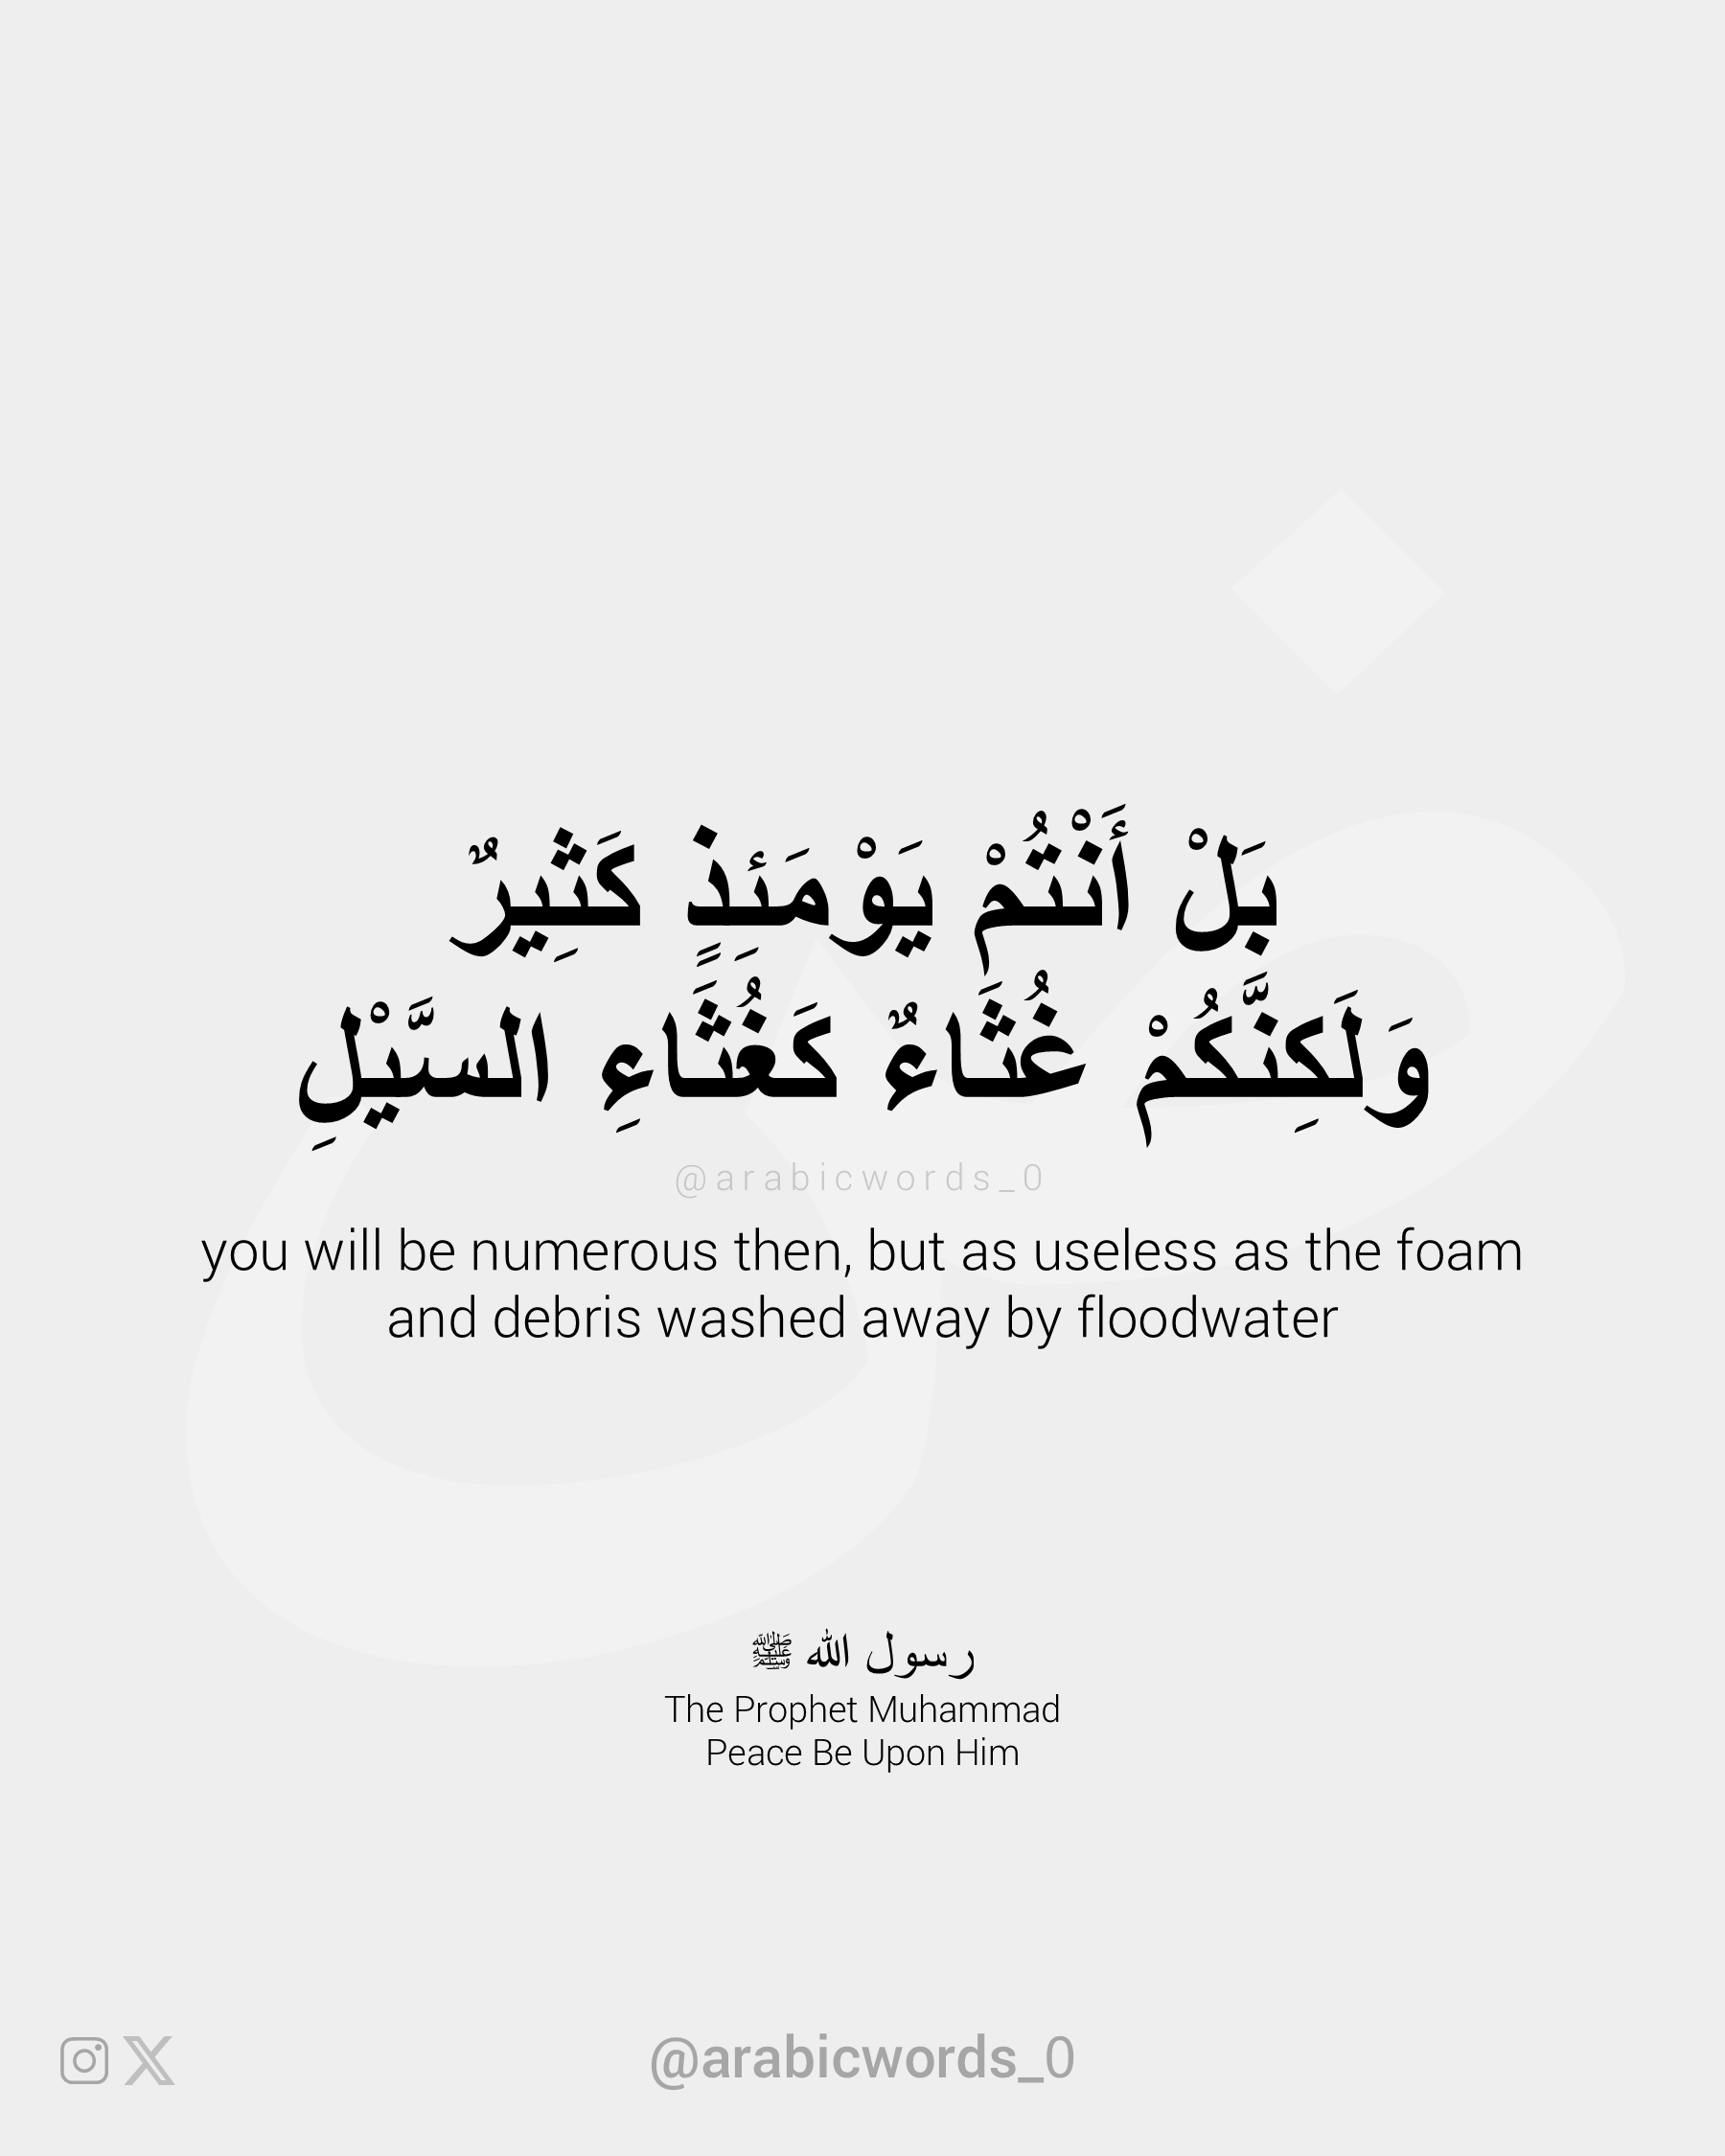 بَلْ أَنْتُمْ يَوْمَئِذٍ كَثِيرٌ
وَلَكِنَّكُمْ غُثَاءٌ كَغُثَاءِ السَّيْلِ
@arabicwords_0
you will be numerous then, but as useless as the foam
and debris washed away by floodwater
رسول الله ﷺ
The Prophet Muhammad
Peace Be Upon Him
@arabicwords_0